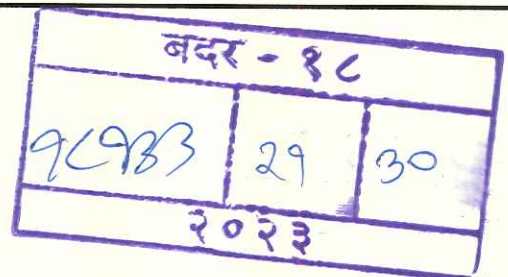 बदर - १८
१८१३३ २१ ३०
२०२३